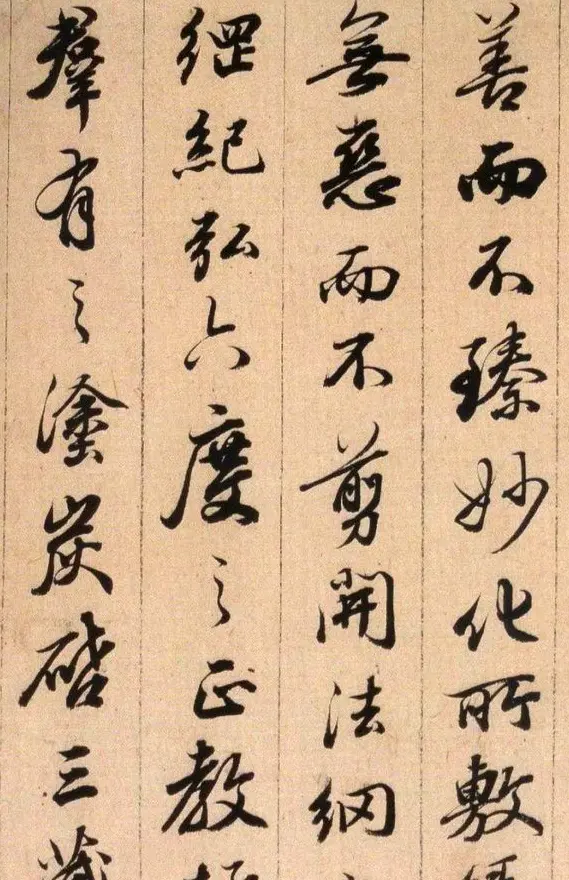 善而不臻妙化所敷
無惡而不剪開法網
綱紀弘六度之正教
羣有之塗炭啓三藏